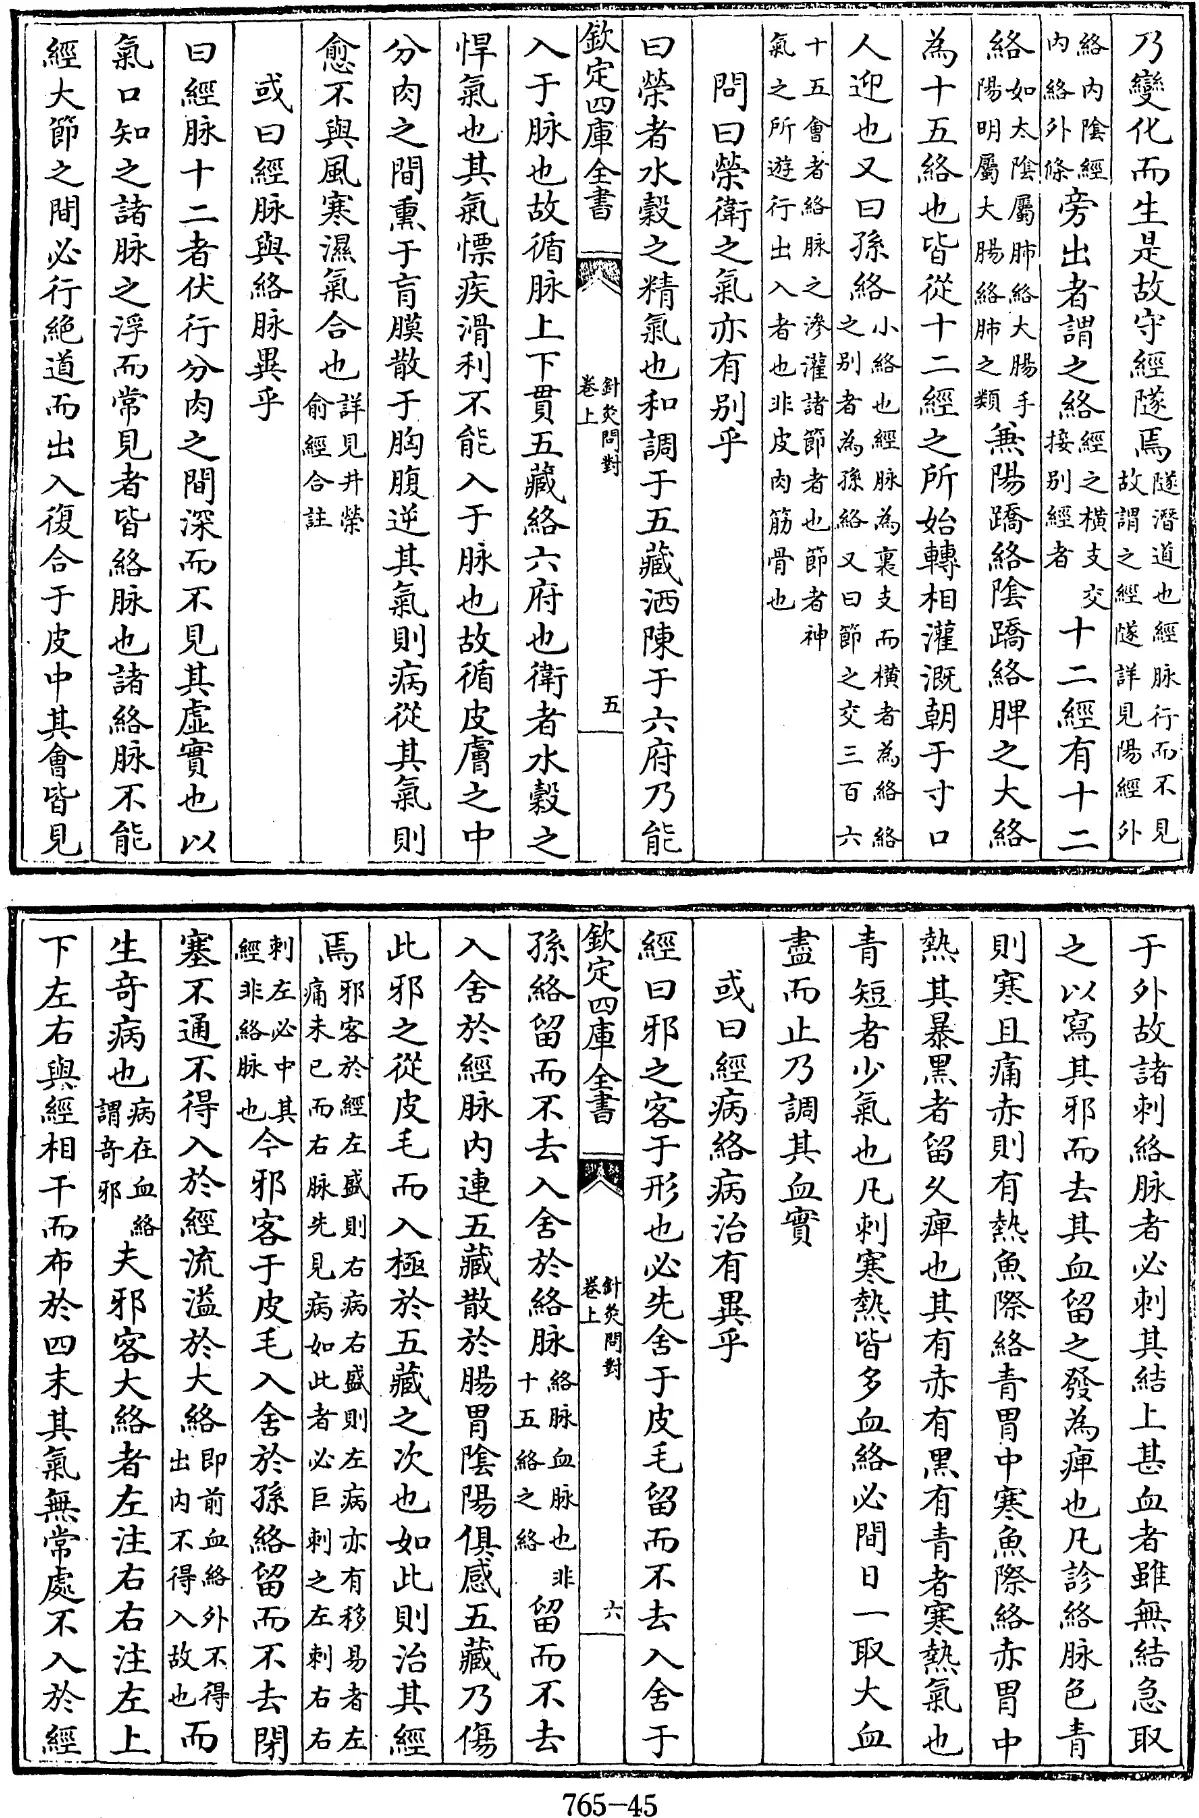 乃變化而生是故守經隧焉隧潛道也經脉行而不見故謂之經隧詳見陽經外
絡内陰經内絡外條旁出者謂之絡經之橫支交接别經者十二經有十二
絡如太陰屬肺絡大腸手陽明屬大腸絡肺之類兼陽蹻絡陰蹻絡脾之大絡
為十五絡也皆從十二經之所始轉相灌溉朝于寸口
人迎也又曰孫絡小絡也經脉為裏支而橫者為絡絡之别者為孫絡又曰節之交三百六
十五會者絡脉之滲灌諸節者也節者神氣之所遊行出入者也非皮肉筋骨也
問曰榮衛之氣亦有别乎
曰榮者水穀之精氣也和調于五藏洒陳于六府乃能
欽定四庫全書
針灸問對
卷上
五
入于脉也故循脉上下貫五藏絡六府也衛者水穀之
悍氣也其氣慓疾滑利不能入于脉也故循皮膚之中
分肉之間熏于肓膜散于胸腹逆其氣則病從其氣則
愈不與風寒濕氣合也詳見井榮俞經合註
或曰經脉與絡脉異乎
曰經脉十二者伏行分肉之間深而不見其虚實也以
氣口知之諸脉之浮而常見者皆絡脉也諸絡脉不能
經大節之間必行絶道而出入復合于皮中其會皆見
于外故諸刺絡脉者必刺其結上甚血者雖無結急取
之以寫其邪而去其血留之發為痺也凡診絡脉色青
則寒且痛赤則有熱魚際絡青胃中寒魚際絡赤胃中
熱其暴黒者留久痺也其有赤有黒有青者寒熱氣也
青短者少氣也凡刺寒熱皆多血絡必間日一取大血
盡而止乃調其血實
或曰經病絡病治有異乎
經曰邪之客于形也必先舍于皮毛留而不去入舍于
欽定四庫全書
針灸問對
卷上
六
孫絡留而不去入舍於絡脉絡脉血脉也非十五絡之絡留而不去
入舍於經脉内連五藏散於腸胃陰陽俱感五藏乃傷
此邪之從皮毛而入極於五藏之次也如此則治其經
焉邪客於經左盛則右病右盛則左病亦有移易者左痛未已而右脉先見病如此者必巨刺之左刺右右
刺左必中其經非絡脉也今邪客于皮毛入舍於孫絡留而不去閉
塞不通不得入於經流溢於大絡即前血絡外不得出内不得入故也而
生奇病也病在血絡謂奇邪夫邪客大絡者左注右右注左上
下左右與經相干而布於四末其氣無常處不入於經
765-45